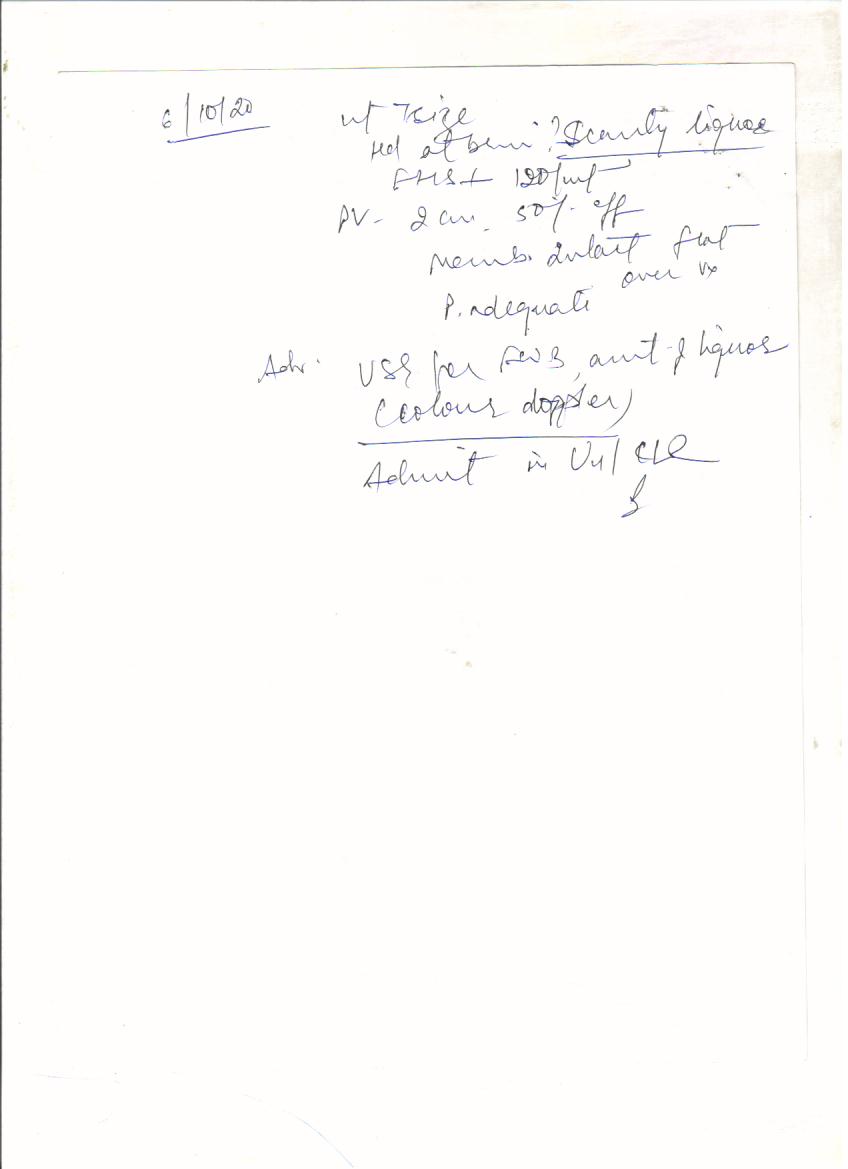 6/10/20
ut Tsize
Hd at brim ? Scanty liquor
FHS+ 120/mt
PV- 2 cm 50% eff
Memb. Intact flat
over Vx
P. adequate
Adv. USG for FWB, amt of liquor
(colour doppler)
Admit in